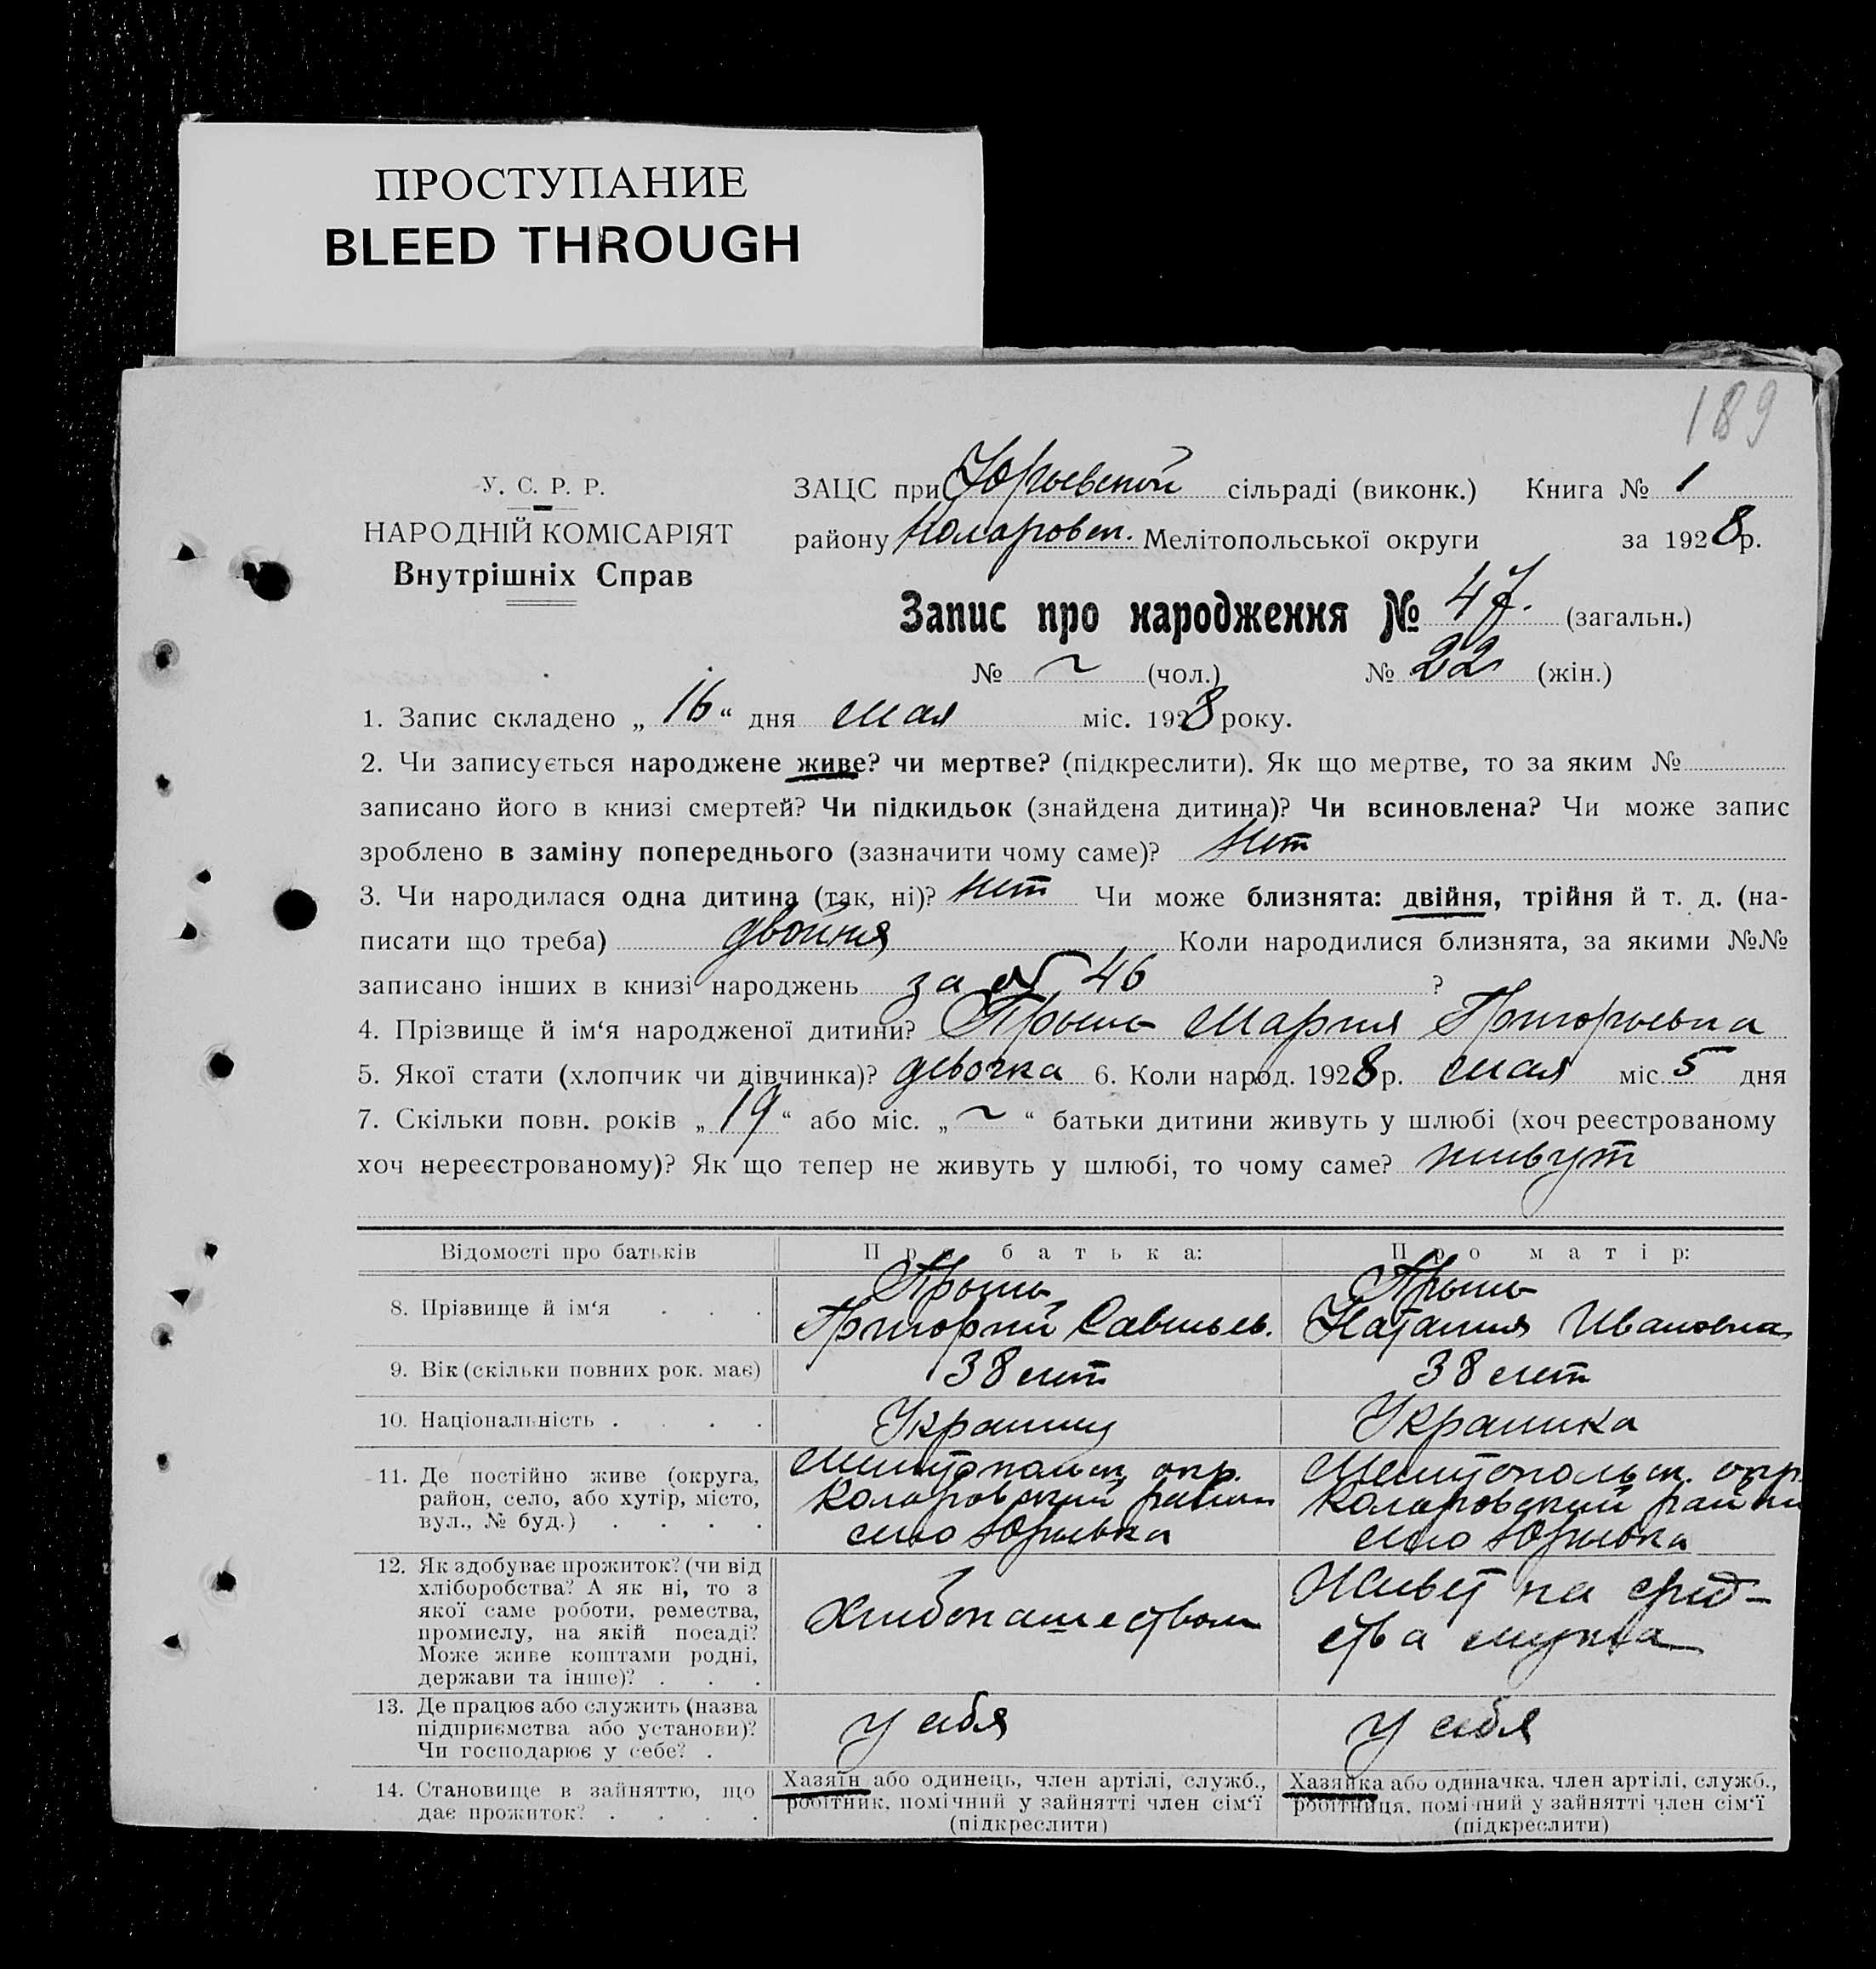 ПРОСТУПАНИЕ
BLEED THROUGH
189
У. С. Р. Р.
НАРОДНІЙ КОМІСАРІЯТ
Внутрішніх Справ
ЗАЦС при Юрьевской сільраді (виконк.) Книга № 1
району Коларовск. Мелітопольської округи за 1928 р.
Запис про народження № 47. (загальн.)
№ ~ (чол.) № 22 (жін.)
1. Запис складено „ 16 “ дня мая міс. 1928 року.
2. Чи записується народжене живе? чи мертве? (підкреслити). Як що мертве, то за яким №
записано його в книзі смертей? Чи підкидьок (знайдена дитина)? Чи всиновлена? Чи може запис
зроблено в заміну попереднього (зазначити чому саме)? нет
3. Чи народилася одна дитина (так, ні)? нет Чи може близнята: двійня, трійня й т. д. (на-
писати що треба) двойня Коли народилися близнята, за якими №№
записано інших в книзі народжень за № 46 ?
4. Прізвище й ім‘я народженої дитини? Мария Григорьевна
5. Якої стати (хлопчик чи дівчинка)? девочка 6. Коли народ. 1928 р. мая міс. 5 дня
7. Скільки повн. років „ 19 “ або міс. „ ~ “ батьки дитини живуть у шлюбі (хоч реєстрованому
хоч нереєстрованому)? Як що тепер не живуть у шлюбі, то чому саме? живут
Відомості про батьків Про батька: Про матір:
8. Прізвище й ім‘я . . .
Григорий Савельев. Наталия Ивановна
9. Вік (скільки повних рок. має) 38 лет 38 лет
10. Національність . . . . Украинец Украинка
11. Де постійно живе (округа,
район, село, або хутір, місто,
вул., № буд.) . . . .
Мелитопольск. окр.
Коларовский район
село Юрьевка
Мелитопольск. окр.
Коларовский район
село Юрьевка
12. Як здобуває прожиток? (чи від
хліборобства? А як ні, то з
якої саме роботи, ремества,
промислу, на якій посаді?
Може живе коштами родні,
держави та інше)? . . .
Хлебопашеством
Живет на сред-
ства мужа
13. Де працює або служить (назва
підприємства або установи)?
Чи господарює у себе? .
у себя
у себя
14. Становище в зайняттю, що
дає прожиток? . . . .
Хазяїн або одинець, член артілі, служб.,
робітник, помічний у зайнятті член сім‘ї
(підкреслити)
Хазяйка або одиначка, член артілі, служб.,
робітниця, помічний у зайнятті член сім‘ї
(підкреслити)